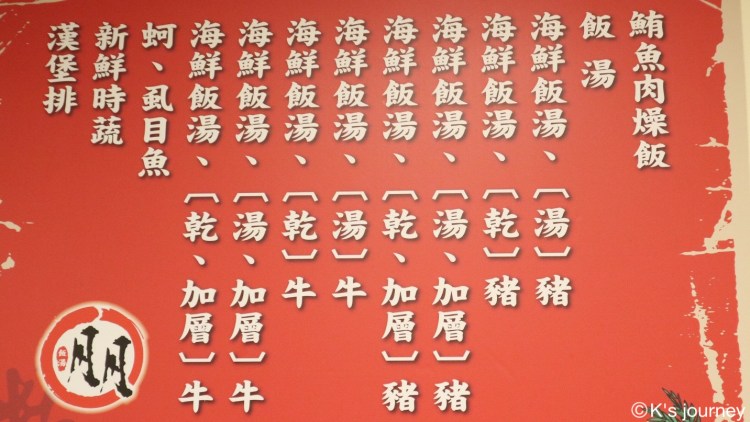 鮪魚肉燥飯
飯湯
海鮮飯湯、〔湯〕豬
海鮮飯湯、〔乾〕豬
海鮮飯湯、〔湯、加層〕豬
海鮮飯湯、〔乾、加層〕豬
海鮮飯湯、〔湯〕牛
海鮮飯湯、〔乾〕牛
海鮮飯湯、〔湯、加層〕牛
海鮮飯湯、〔乾、加層〕牛
蚵、虱目魚
新鮮時蔬
漢堡排
飯湯
©K's journey